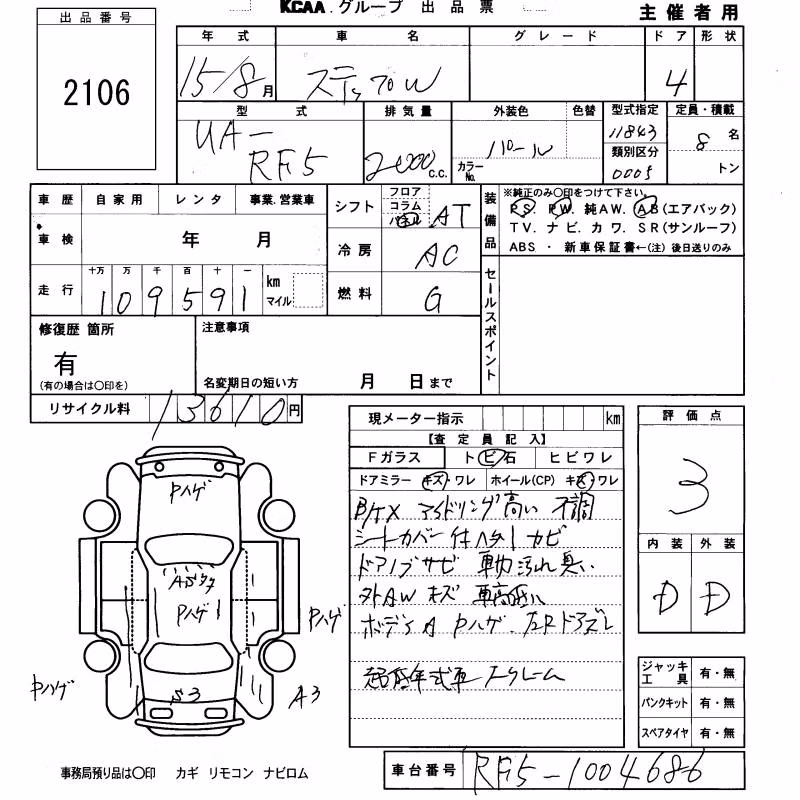 KCAA.グループ 出品票
主催者用
出品番号
2106
年式 車名 グレード ドア 形状
15/8月 ステップW 4
型式 排気量 外装色 色替 型式指定 定員・積載
UA-RF5 2000c.c. パール カラーNo. 11843 8名
類別区分 0005 トン
車歴 自家用 レンタ 事業.営業車
シフト フロア コラム パネル AT
装備品 ※純正のみ〇印をつけて下さい。
PS. PW. 純AW. AB(エアバック)
TV. ナビ. カワ. SR(サンルーフ)
ABS ・ 新車保証書←(注) 後日送りのみ
車検 年 月
冷房 AC
走行 十万 万 千 百 十 一 km マイル
109591
燃料 G
セールスポイント
修復歴 箇所
有
(有の場合は〇印を)
注意事項
名変期日の短い方 月 日まで
リサイクル料 13610円
現メーター指示 km
【査定員記入】
Fガラス トビ石 ヒビワレ
ドアミラー キズ・ワレ ホイール(CP) キズ・ワレ
B/タX アイドリング高い 不調
シートカバー付 ハタ1 カビ
ドアノブサビ 車内汚れ 臭い
外AW キズ 車高低い
ボディA Pハゲ.左Rドアズレ
超低年式車 ノークレーム
評価点
3
内装 外装
D D
ジャッキ工具 有・無
パンクキット 有・無
スペアタイヤ 有・無
Pハゲ
Pハゲ1
Pハゲ
Pハゲ
S3
A3
事務局預り品は〇印 カギ リモコン ナビロム
車台番号 RF5-1004686